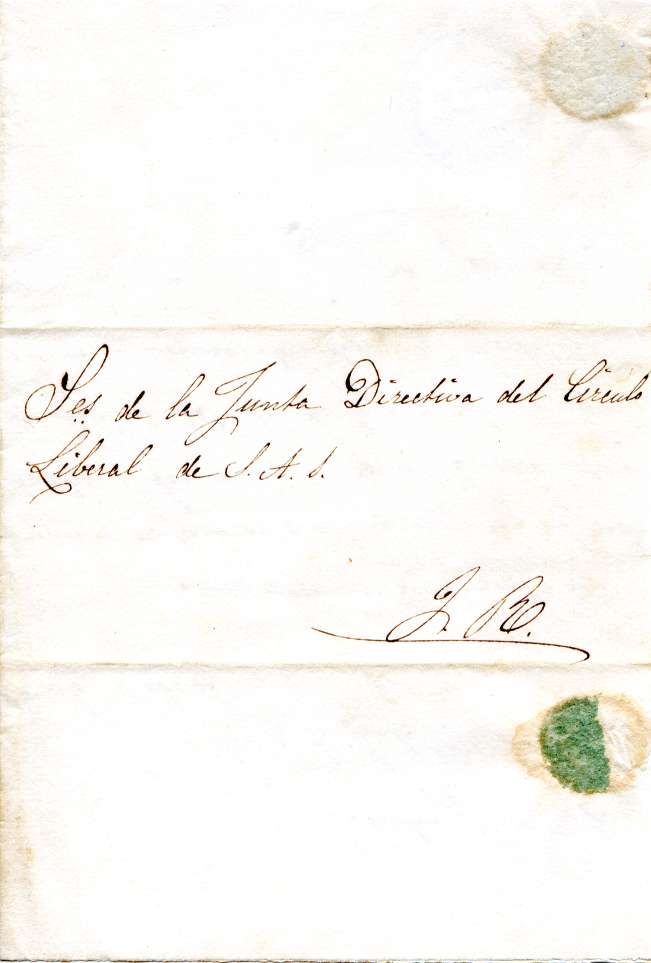 Ses. de la Junta Directiva del Circulo
Liberal de S. A. S.
J. R.